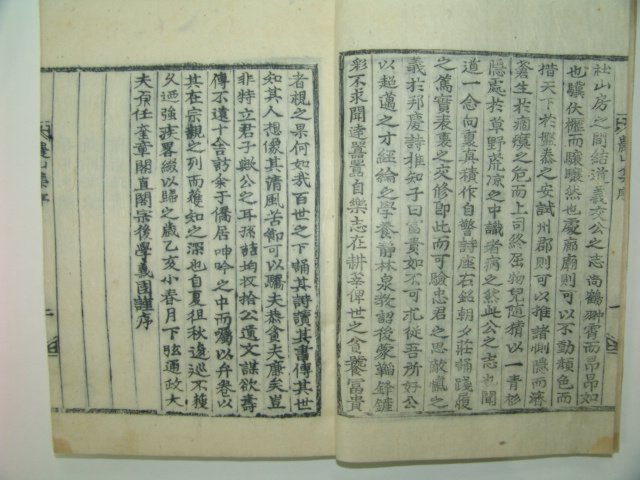 社山房之間結道義交公之志尚鶴翔霄而昂昂如
也驥伏櫪而驤驤然也處廊廟則可以不動顏色而
措天下於盤泰之安試州郡則可以推諸惻隱而濟
蒼生於痌癏之危而上司終屈物兒隨積以一青衫
隱處於草野荒凉之中識者病之然此公之志也聞
道一念向裏眞積作自警詩座右銘朝夕莊誦踐履
之篤實表裏之交修即此而可驗忠君之思敵愾之
義於邦慶詩推知子曰富貴如不可求從吾所好公
以超邁之才經綸之學養靜林泉教詔後蒙韜鋒鏟
彩不求聞達囂囂自樂志在耕莘俾世之貪饕富貴
者視之果何如我百世之下誦其詩讀其書傳其世
知其人想像其淸風苦節可以驕夫恭貪夫廉矣豈
非特立君子歟公之耳孫 均收拾公遺文謀欲壽
傳不遠十舍訪余于僑居呻吟之中而屬以弁卷以
其在宗觀之列而獲知之深也自夏徂秋逡巡不獲
久廼強疾畧綴以歸之歲乙亥小春月下弦通政大
夫 任奎章閣直閣宗後學義國謹序